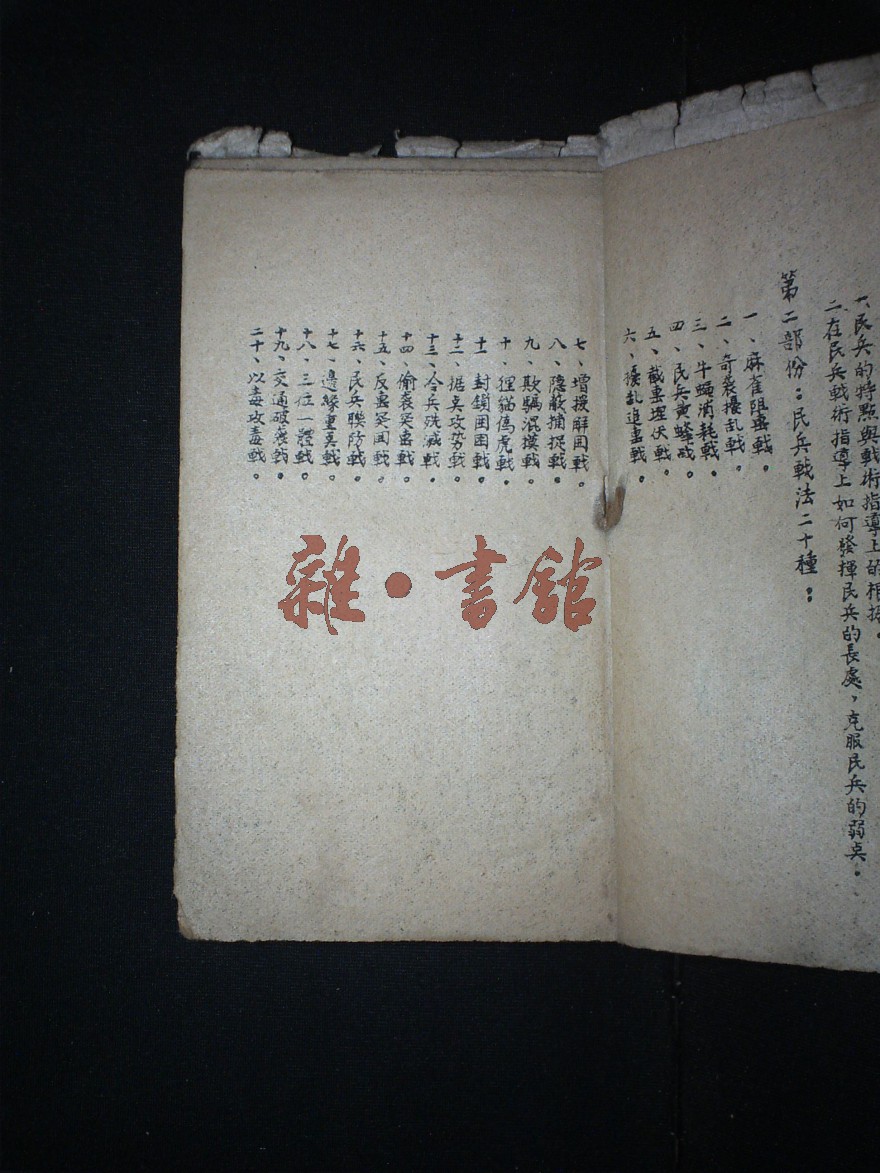 一、民兵的特點與戰術指導上的根據。
二、在民兵戰術指導上如何發揮民兵的長處，克服民兵的弱点。
第二部份：民兵戰法二十種：
一、麻雀阻擊戰。
二、奇袭擾乱戰。
三、牛蠅消耗戰。
四、民兵黄蜂战
五、截击埋伏戰。
六、擾乱追击戰。
七、增援解围戰。
八、隐蔽捕捉戰。
九、欺騙混摸戰。
十、狸貓傷虎戰。
十一、封鎖围困戰。
十二、据点攻势戰。
十三、冷兵殲滅戰。
十四、偷袭突击戰。
十五、反击突围戰。
十六、民兵聯防戰。
十七、邊緣重点戰。
十八、三位一體戰。
十九、交通破袭戰。
二十、以毒攻毒戰。
雜·書館